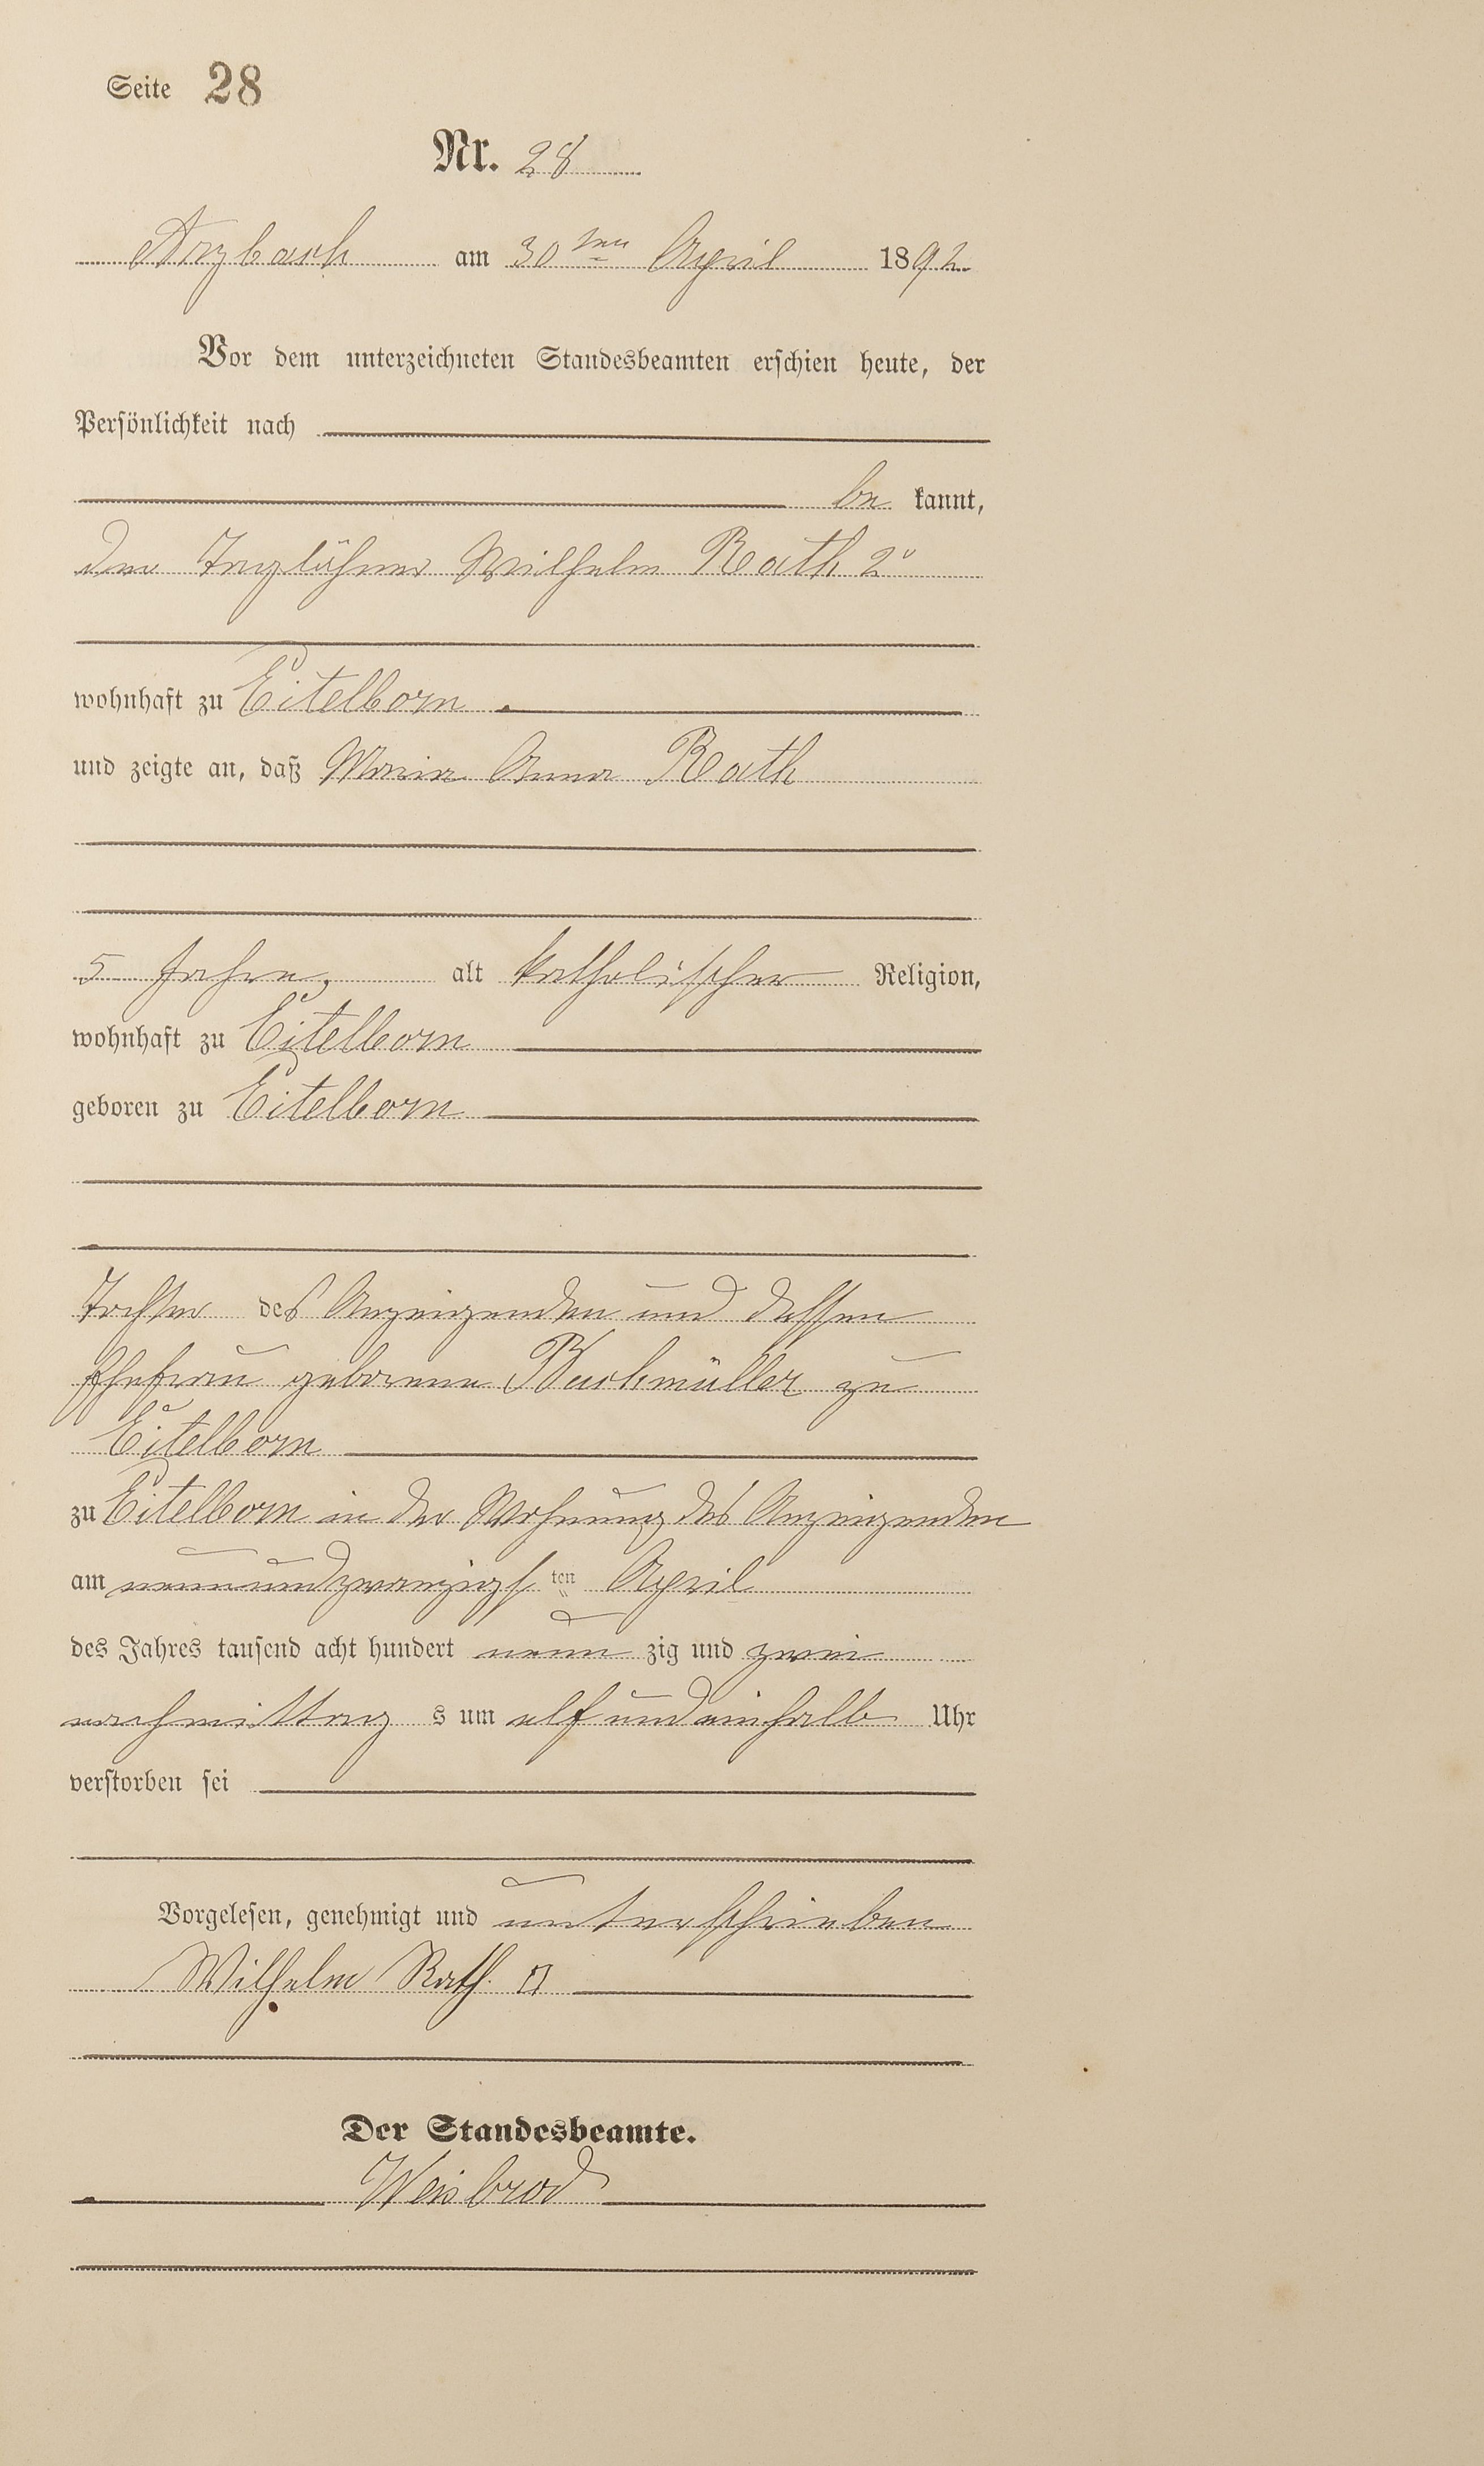 Seite 28
Nr. 28
Arzbach am 30ten April 1892
Vor dem unterzeichneten Standesbeamten erschien heute, der
Persönlichkeit nach
be kannt,
der Taglöhner Wilhelm Rath 2r
wohnhaft zu Eitelborn
und zeigte an, daß Maria Anna Rath
5 Jahre, alt katholischer Religion,
wohnhaft zu Eitelborn
geboren zu Eitelborn
Tochter des Anzeigenden und dessen
Ehefrau geborene Buchmüller zu
Eitelborn
zu Eitelborn in der Wohnung des Anzeigenden
am neunundzwanzigsten April
des Jahres tausend acht hundert neun zig und zwei
nachmittag s um elf und einhalb Uhr
verstorben sei
Vorgelesen, genehmigt und unterschrieben
Wilhelm Rath II
Der Standesbeamte.
Weisbrod